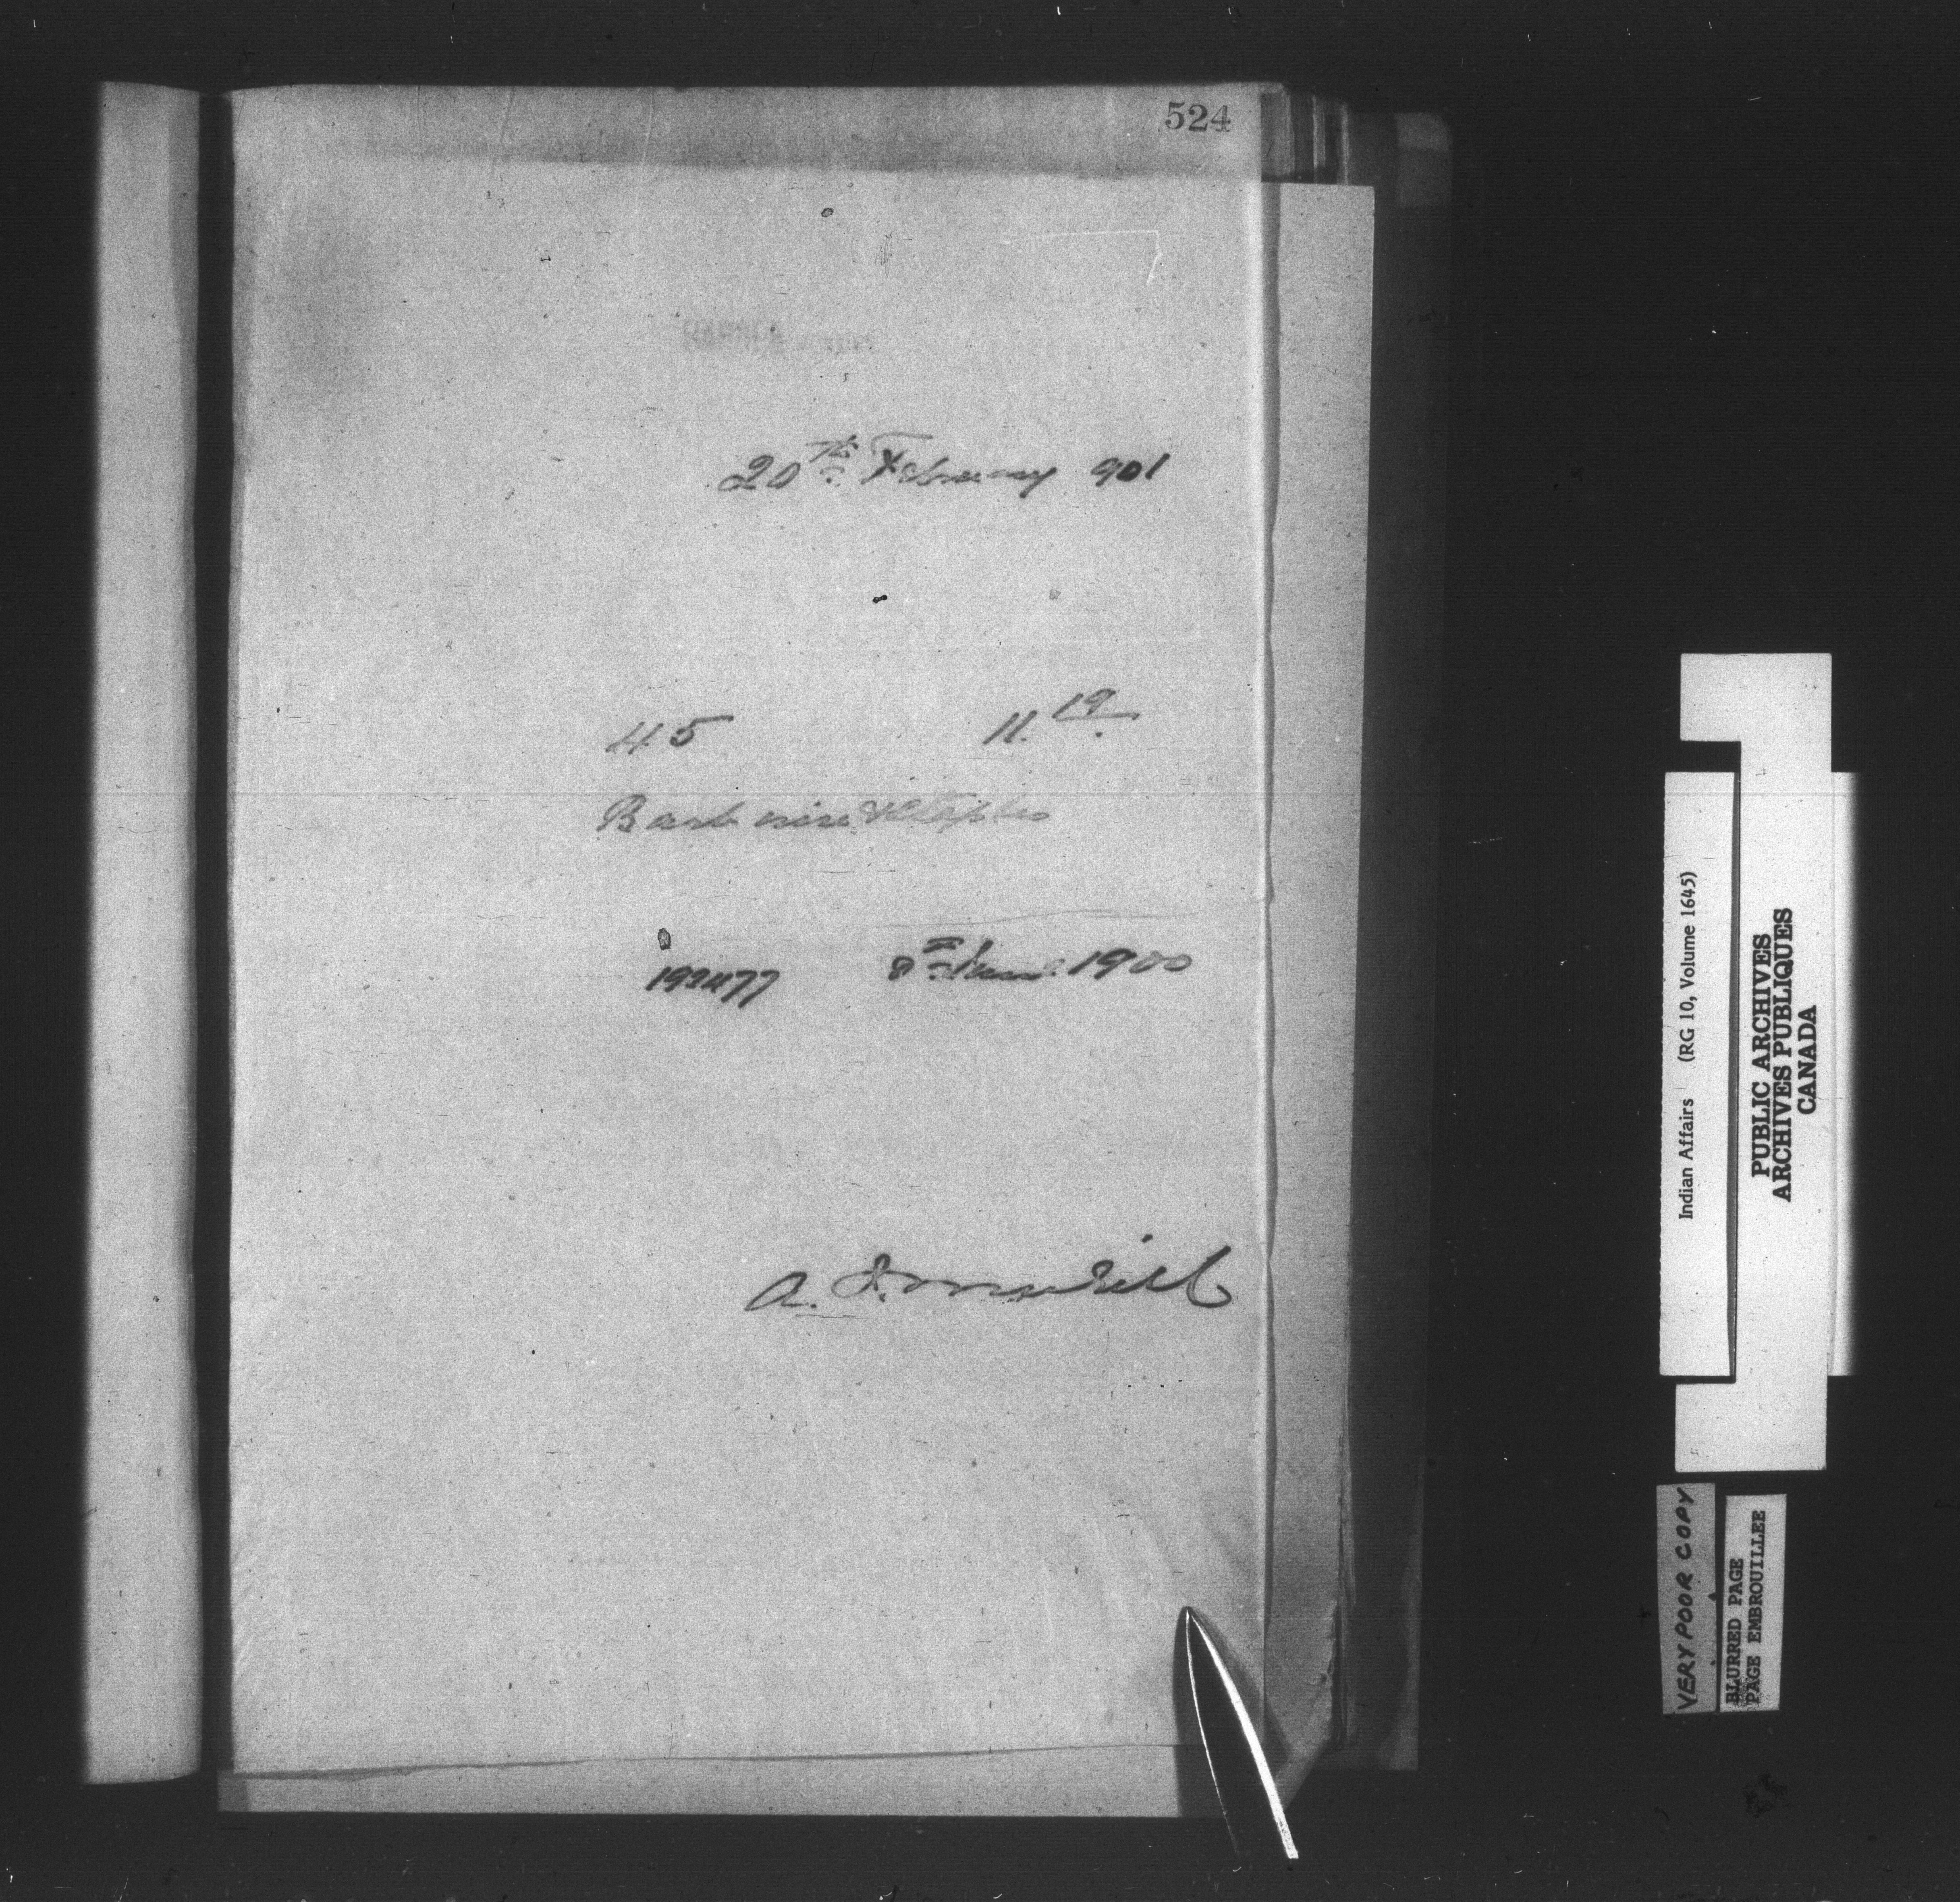 524
20th February 901
45 11.19
Barb wire & Staples
192477 8th June 1900
A.
Indian Affairs (RG 10, Volume 1645)
PUBLIC ARCHIVES
ARCHIVES PUBLIQUES
CANADA
VERY POOR COPY
BLURRED PAGE
PAGE EMBROUILLEE